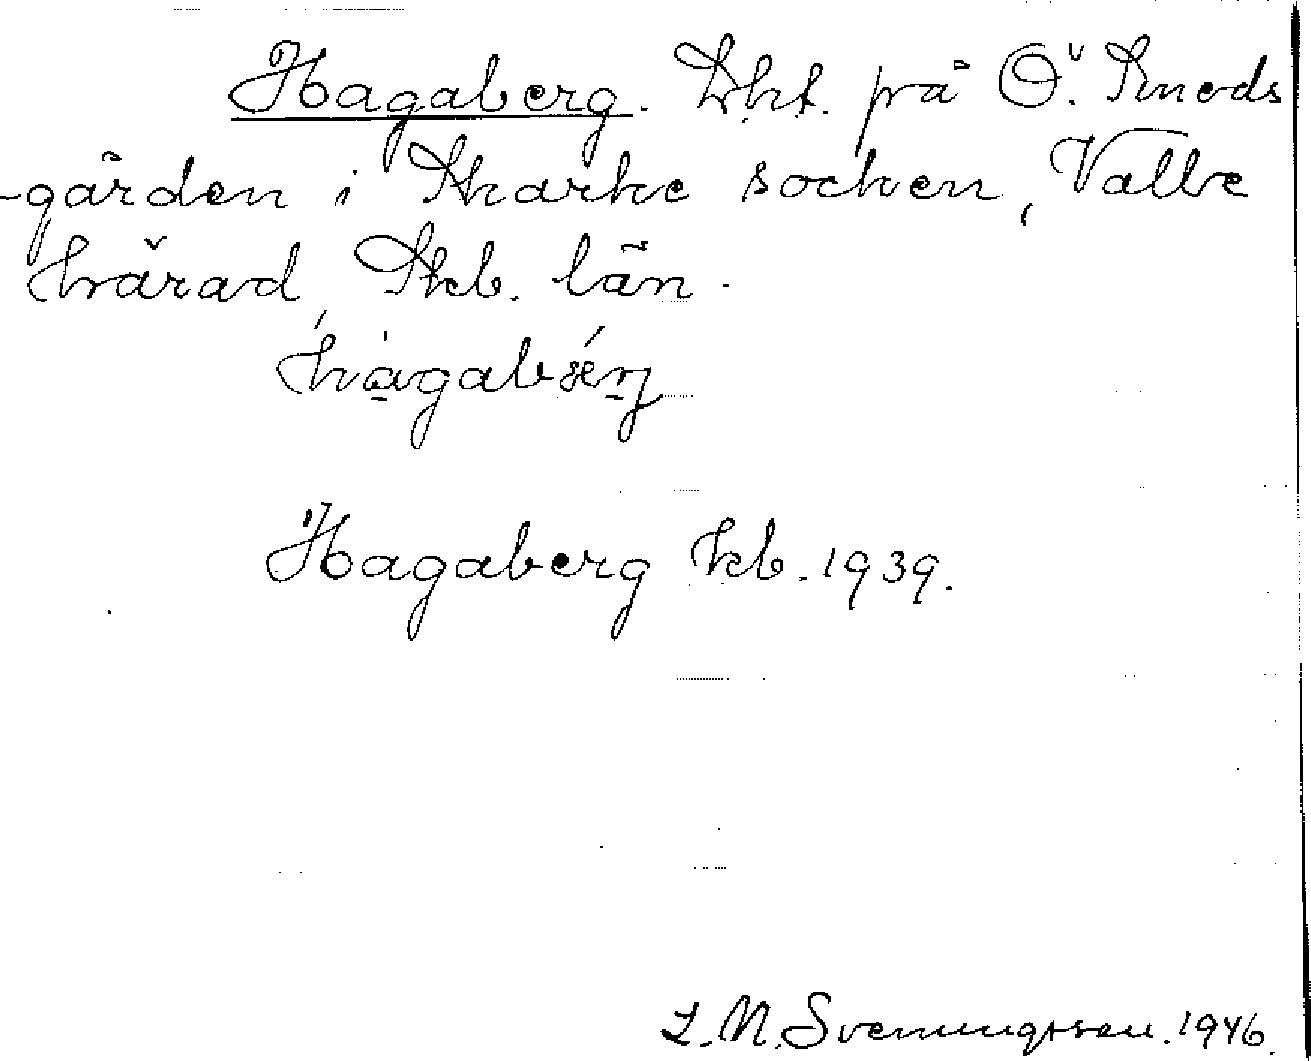 Hagaberg. Lht. på Ö. Smeds
-gården i Skarke socken, Valle
härad, Skb. län.
hágabǽrj
Hagaberg kb. 1939.
L. M. Svenungsson. 1946.